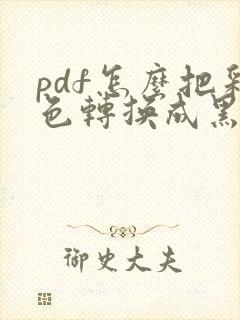 pdf怎麼把彩
色轉換成黑
御史大夫